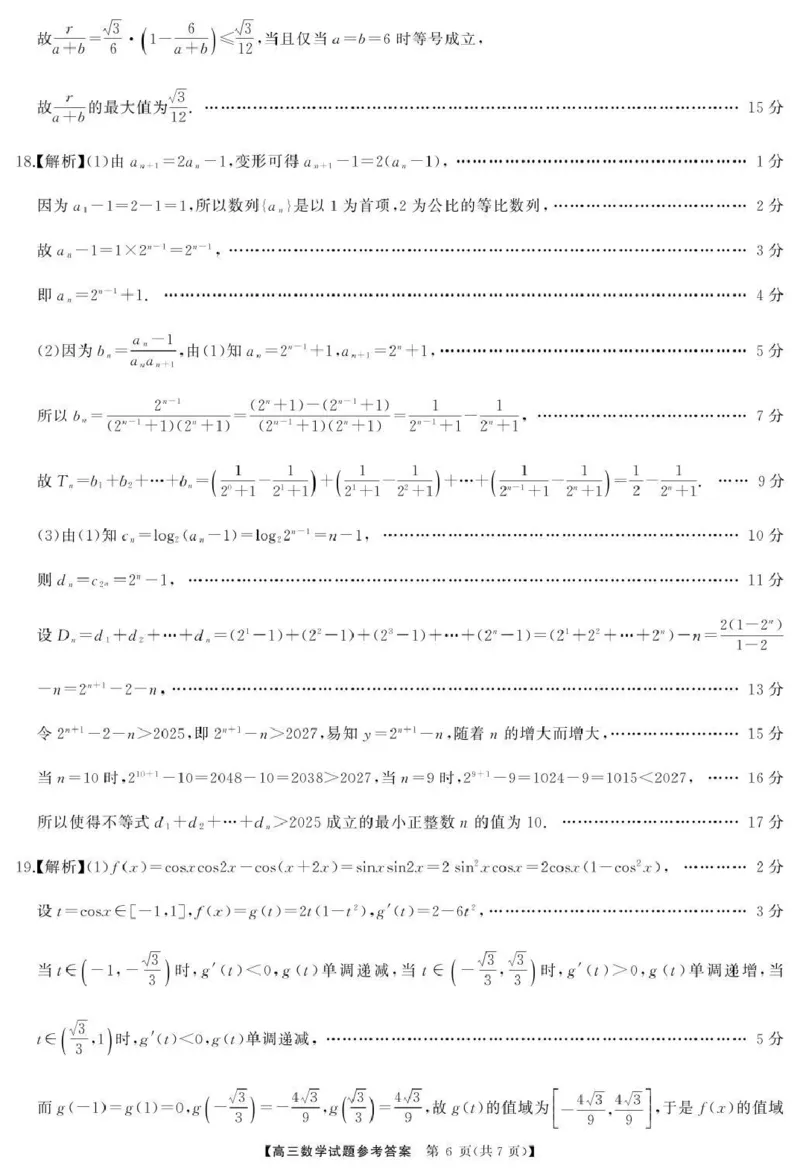 故 r/(a+b)=√3/6·(1-6/(a+b))≤√3/12,当且仅当a=b=6时等号成立,
故 r/(a+b) 的最大值为 √3/12. …… 15分
18.【解析】(1)由aₙ₊₁=2aₙ-1,变形可得aₙ₊₁-1=2(aₙ-1), …… 1分
因为a₁-1=2-1=1,所以数列{aₙ}是以1为首项,2为公比的等比数列, …… 2分
故aₙ-1=1×2ⁿ⁻¹=2ⁿ⁻¹, …… 3分
即aₙ=2ⁿ⁻¹+1. …… 4分
(2)因为bₙ=(aₙ-1)/(aₙaₙ₊₁),由(1)知aₙ=2ⁿ⁻¹+1,aₙ₊₁=2ⁿ+1, …… 5分
所以bₙ=2ⁿ⁻¹/((2ⁿ⁻¹+1)(2ⁿ+1))=((2ⁿ+1)-(2ⁿ⁻¹+1))/((2ⁿ⁻¹+1)(2ⁿ+1))=1/(2ⁿ⁻¹+1)-1/(2ⁿ+1), …… 7分
故Tₙ=b₁+b₂+…+bₙ=(1/(2⁰+1)-1/(2¹+1))+(1/(2¹+1)-1/(2²+1))+…+(1/(2ⁿ⁻¹+1)-1/(2ⁿ+1))=1/2-1/(2ⁿ+1). …… 9分
(3)由(1)知cₙ=log₂(aₙ-1)=log₂2ⁿ⁻¹=n-1, …… 10分
则dₙ=c_{2ⁿ}=2ⁿ-1, …… 11分
设Dₙ=d₁+d₂+…+dₙ=(2¹-1)+(2²-1)+(2³-1)+…+(2ⁿ-1)=(2¹+2²+…+2ⁿ)-n=2(1-2ⁿ)/(1-2)
-n=2ⁿ⁺¹-2-n, …… 13分
令2ⁿ⁺¹-2-n>2025,即2ⁿ⁺¹-n>2027,易知y=2ⁿ⁺¹-n,随着n的增大而增大, …… 15分
当n=10时,2¹⁰⁺¹-10=2048-10=2038>2027,当n=9时,2⁹⁺¹-9=1024-9=1015<2027, …… 16分
所以使得不等式d₁+d₂+…+dₙ>2025成立的最小正整数n的值为10. …… 17分
19.【解析】(1)f(x)=cosxcos2x-cos(x+2x)=sinxsin2x=2 sin²xcosx=2cosx(1-cos²x), …… 2分
设t=cosx∈[-1,1],f(x)=g(t)=2t(1-t²),g′(t)=2-6t², …… 3分
当t∈(-1,-√3/3)时,g′(t)<0,g(t)单调递减,当t∈(-√3/3,√3/3)时,g′(t)>0,g(t)单调递增,当
t∈(√3/3,1)时,g′(t)<0,g(t)单调递减, …… 5分
而g(-1)=g(1)=0,g(-√3/3)=-4√3/9,g(√3/3)=4√3/9,故g(t)的值域为[-4√3/9,4√3/9],于是f(x)的值域
【高三数学试题参考答案 第6页(共7页)】